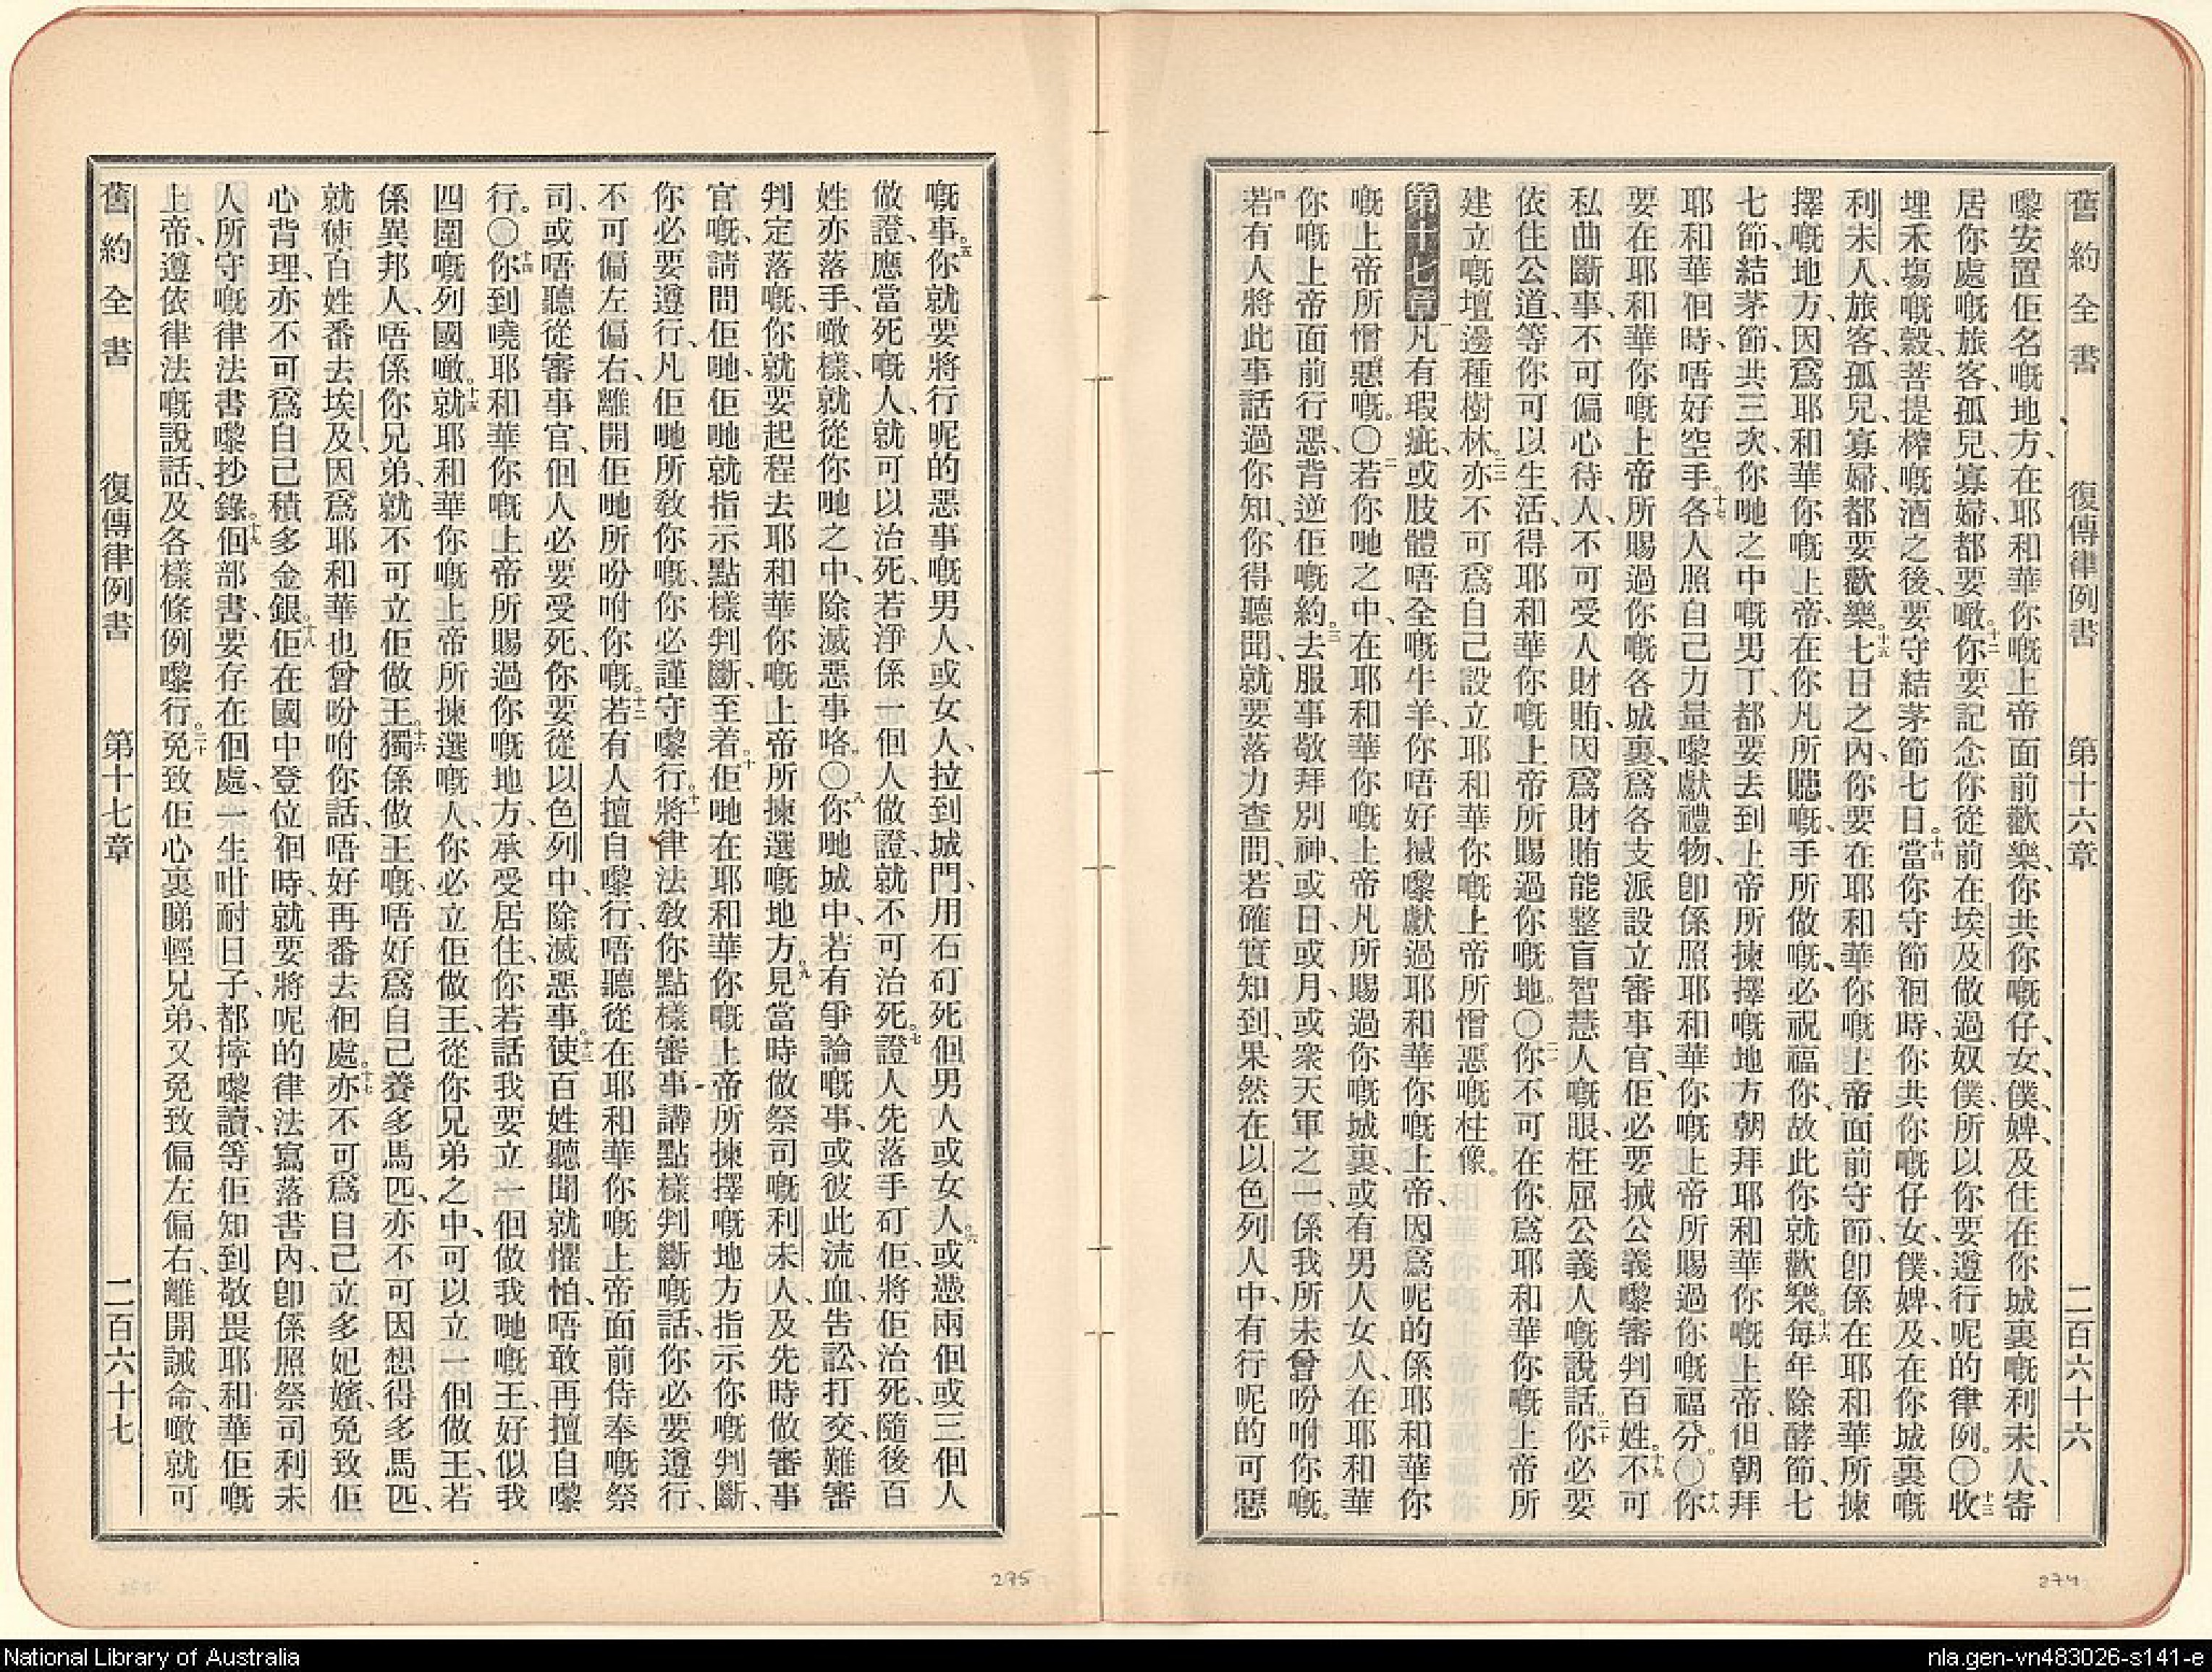 舊約全書 復傳律例書 第十六章 二百六十六
嚟安置佢名嘅地方、在耶和華你嘅上帝面前歡樂、你共你嘅仔、女、僕、婢、及住在你城裏嘅利未人、寄
居你處嘅旅客、孤兒、寡婦、都要噉。十二你要記念你從前在埃及做過奴僕、所以你要遵行呢的律例。〇十三收
埋禾塲嘅穀、菩提榨嘅酒之後、要守結茅節七日。十四當你守節徊時、你共你嘅仔、女、僕、婢、及在你城裏嘅
利未人、旅客、孤兒、寡婦、都要歡樂。十五七日之內、你要在耶和華你嘅上帝面前守節、卽係在耶和華所揀
擇嘅地方、因爲耶和華你嘅上帝、在你凡所聽嘅、手所做嘅、必祝福你、故此你就歡樂。十六每年除酵節、七
七節、結茅節、共三次、你哋之中嘅男丁、都要去到上帝所揀擇嘅地方朝拜耶和華你嘅上帝、但朝拜
耶和華徊時、唔好空手。十七各人照自己力量嚟獻禮物、卽係照耶和華你嘅上帝所賜過你嘅福分。〇十八你
要在耶和華你嘅上帝所賜過你嘅各城裏、爲各支派設立審事官、佢必要揻公義嚟審判百姓。十九不可
私曲斷事、不可偏心待人、不可受人財賄、因爲財賄能整盲智慧人嘅眼、枉屈公義人嘅說話。二十你必要
依住公道、等你可以生活、得耶和華你嘅上帝所賜過你嘅地。〇二一你不可在你爲耶和華你嘅上帝所
建立嘅壇邊種樹林。二二亦不可爲自己設立耶和華你嘅上帝所憎惡嘅柱像。
第十七章 一凡有瑕疵、或肢體唔全嘅牛羊、你唔好揻嚟獻過耶和華你嘅上帝、因爲呢的係耶和華你
嘅上帝所憎惡嘅。〇二若你哋之中、在耶和華你嘅上帝凡所賜過你嘅城裏、或有男人女人、在耶和華
你嘅上帝面前行惡、背逆佢嘅約。三去服事敬拜別神、或日、或月、或衆天軍之一、係我所未曾吩咐你嘅。
四若有人將此事話過你知、你得聽聞、就要落力查問、若確實知到、果然在以色列人中、有行呢的可惡
嘅事。五你就要將行呢的惡事嘅男人、或女人、拉到城門、用石矴死個男人或女人。六或憑兩個或三個人
做證、應當死嘅人、就可以治死、若淨係一個人做證、就不可治死。七證人先落手矴佢、將佢治死、隨後百
姓亦落手、噉樣、就從你哋之中、除滅惡事咯。〇八你哋城中、若有爭論嘅事、或彼此流血、告訟、打交、難審
判定落嘅、你就要起程去耶和華你嘅上帝所揀選嘅地方。九見當時做祭司嘅利未人、及先時做審事
官嘅、請問佢哋、佢哋就指示點樣判斷、至着。十佢哋在耶和華你嘅上帝所揀擇嘅地方指示你嘅判斷、
你必要遵行、凡佢哋所敎你嘅、你必謹守嚟行。十一將律法敎你點樣審事、講點樣判斷嘅話、你必要遵行、
不可偏左偏右、離開佢哋所吩咐你嘅。十二若有人擅自嚟行、唔聽從在耶和華你嘅上帝面前侍奉嘅祭
司、或唔聽從審事官、個人必要受死、你要從以色列中、除滅惡事。十三使百姓聽聞就懼怕、唔敢再擅自嚟
行。〇十四你到曉耶和華你嘅上帝所賜過你嘅地方、承受居住、你若話我要立一個做我哋嘅王、好似我
四圍嘅列國噉。十五就耶和華你嘅上帝所揀選嘅人、你必立佢做王、從你兄弟之中、可以立一個做王、若
係異邦人、唔係你兄弟、就不可立佢做王。十六獨係做王嘅、唔好爲自己養多馬匹、亦不可因想得多馬匹、
就使百姓番去埃及、因爲耶和華也曾吩咐你話、唔好再番去個處。十七亦不可爲自己立多妃嬪、免致佢
心背理、亦不可爲自己積多金銀。十八佢在國中登位徊時、就要將呢的律法寫落書內、卽係照祭司利未
人所守嘅律法書嚟抄錄。十九個部書、要存在個處、一生咁耐日子、都擰嚟讀、等佢知到敬畏耶和華佢嘅
上帝、遵依律法嘅說話、及各樣條例嚟行。二十免致佢心裏睇輕兄弟、又免致偏左偏右、離開誡命、噉就可
舊約全書 復傳律例書 第十七章 二百六十七
275
274
National Library of Australia
nla.gen-vn483026-s141-e